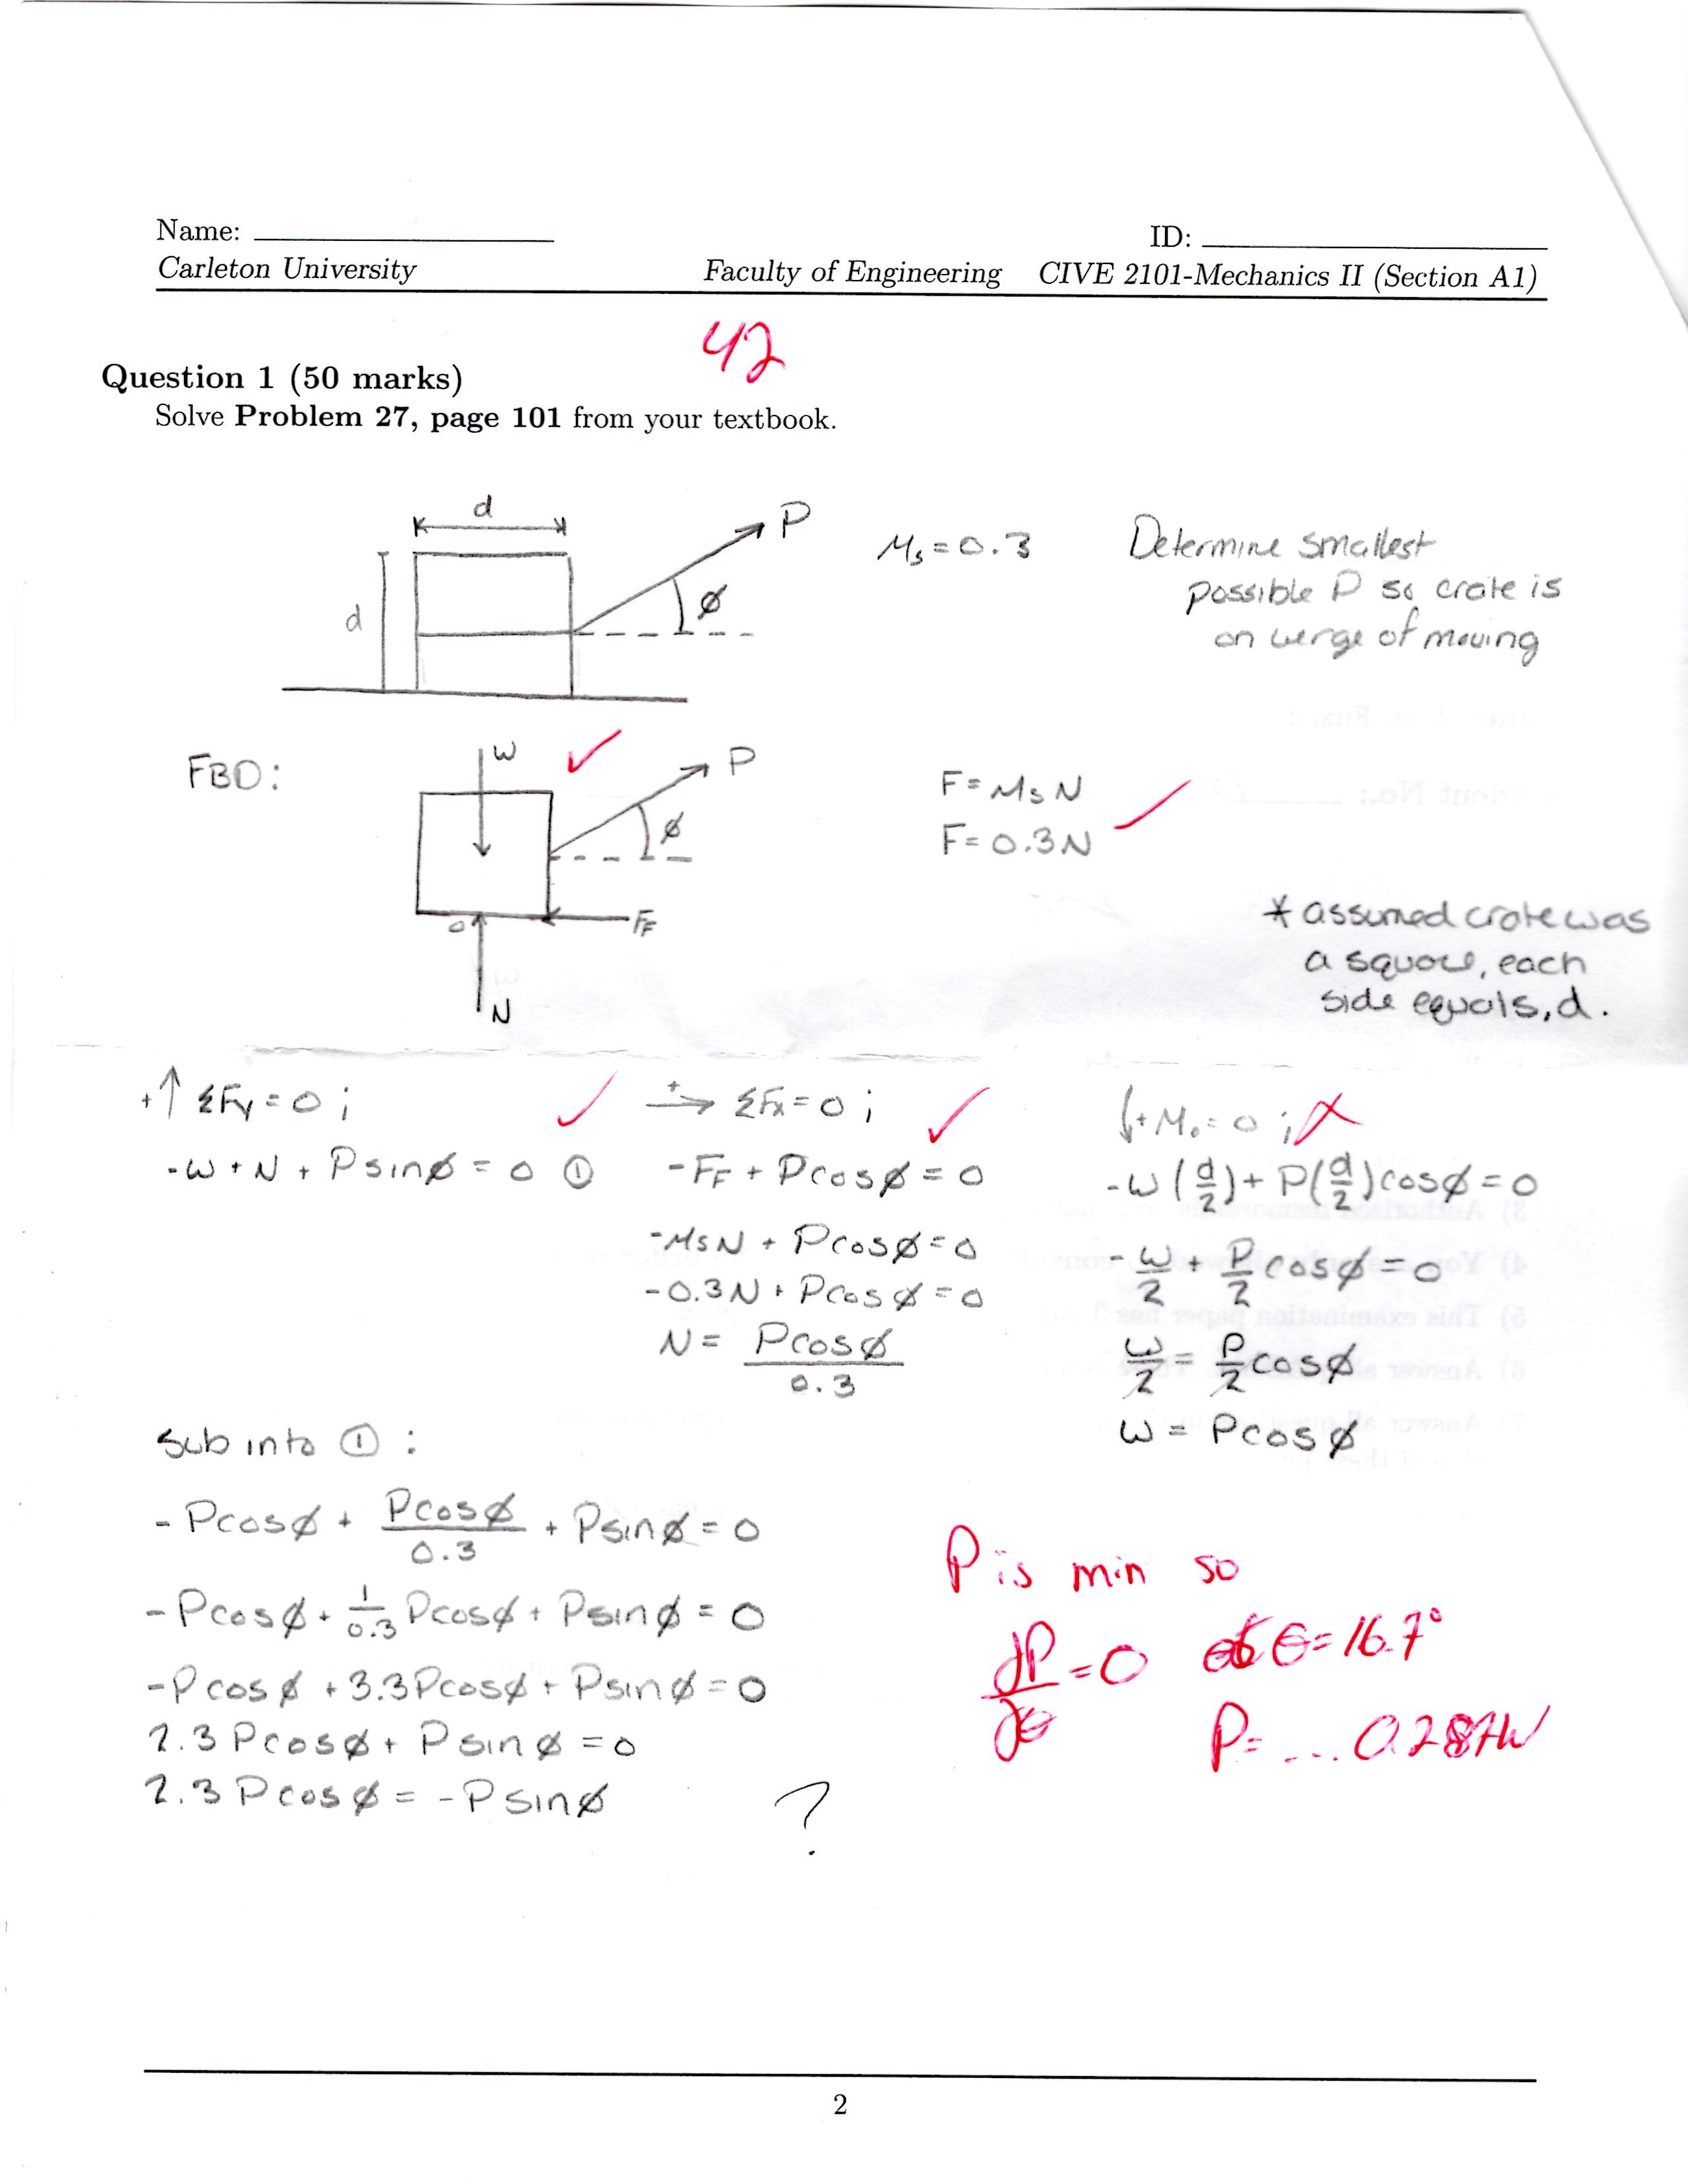 Name: ____________ ID: ____________
Carleton University Faculty of Engineering CIVE 2101-Mechanics II (Section A1)
42
Question 1 (50 marks)
Solve Problem 27, page 101 from your textbook.
d
P
d
ø
Ms = 0.3
Determine smallest
possible P so crate is
on verge of moving
FBD:
W
P
ø
o
FF
N
F = Ms N
F = 0.3N
* assumed crate was
a square, each
side equals, d.
+↑ ΣFy = 0 ;
-W + N + Psinø = 0 ①
+→ ΣFx = 0 ;
-FF + Pcosø = 0
-MsN + Pcosø = 0
-0.3N + Pcosø = 0
N = Pcosø
0.3
+ Mo = 0 ;
-W (d/2) + P(d/2)cosø = 0
-W/2 + P/2 cosø = 0
W/2 = P/2 cosø
W = Pcosø
Sub into ① :
-Pcosø + Pcosø/0.3 + Psinø = 0
-Pcosø + 1/0.3 Pcosø + Psinø = 0
-Pcosø + 3.3Pcosø + Psinø = 0
2.3 Pcosø + Psinø = 0
2.3 Pcosø = -Psinø
?
P is min so
dP/dθ = 0 θ = 16.7°
P = ... 0.287W
2